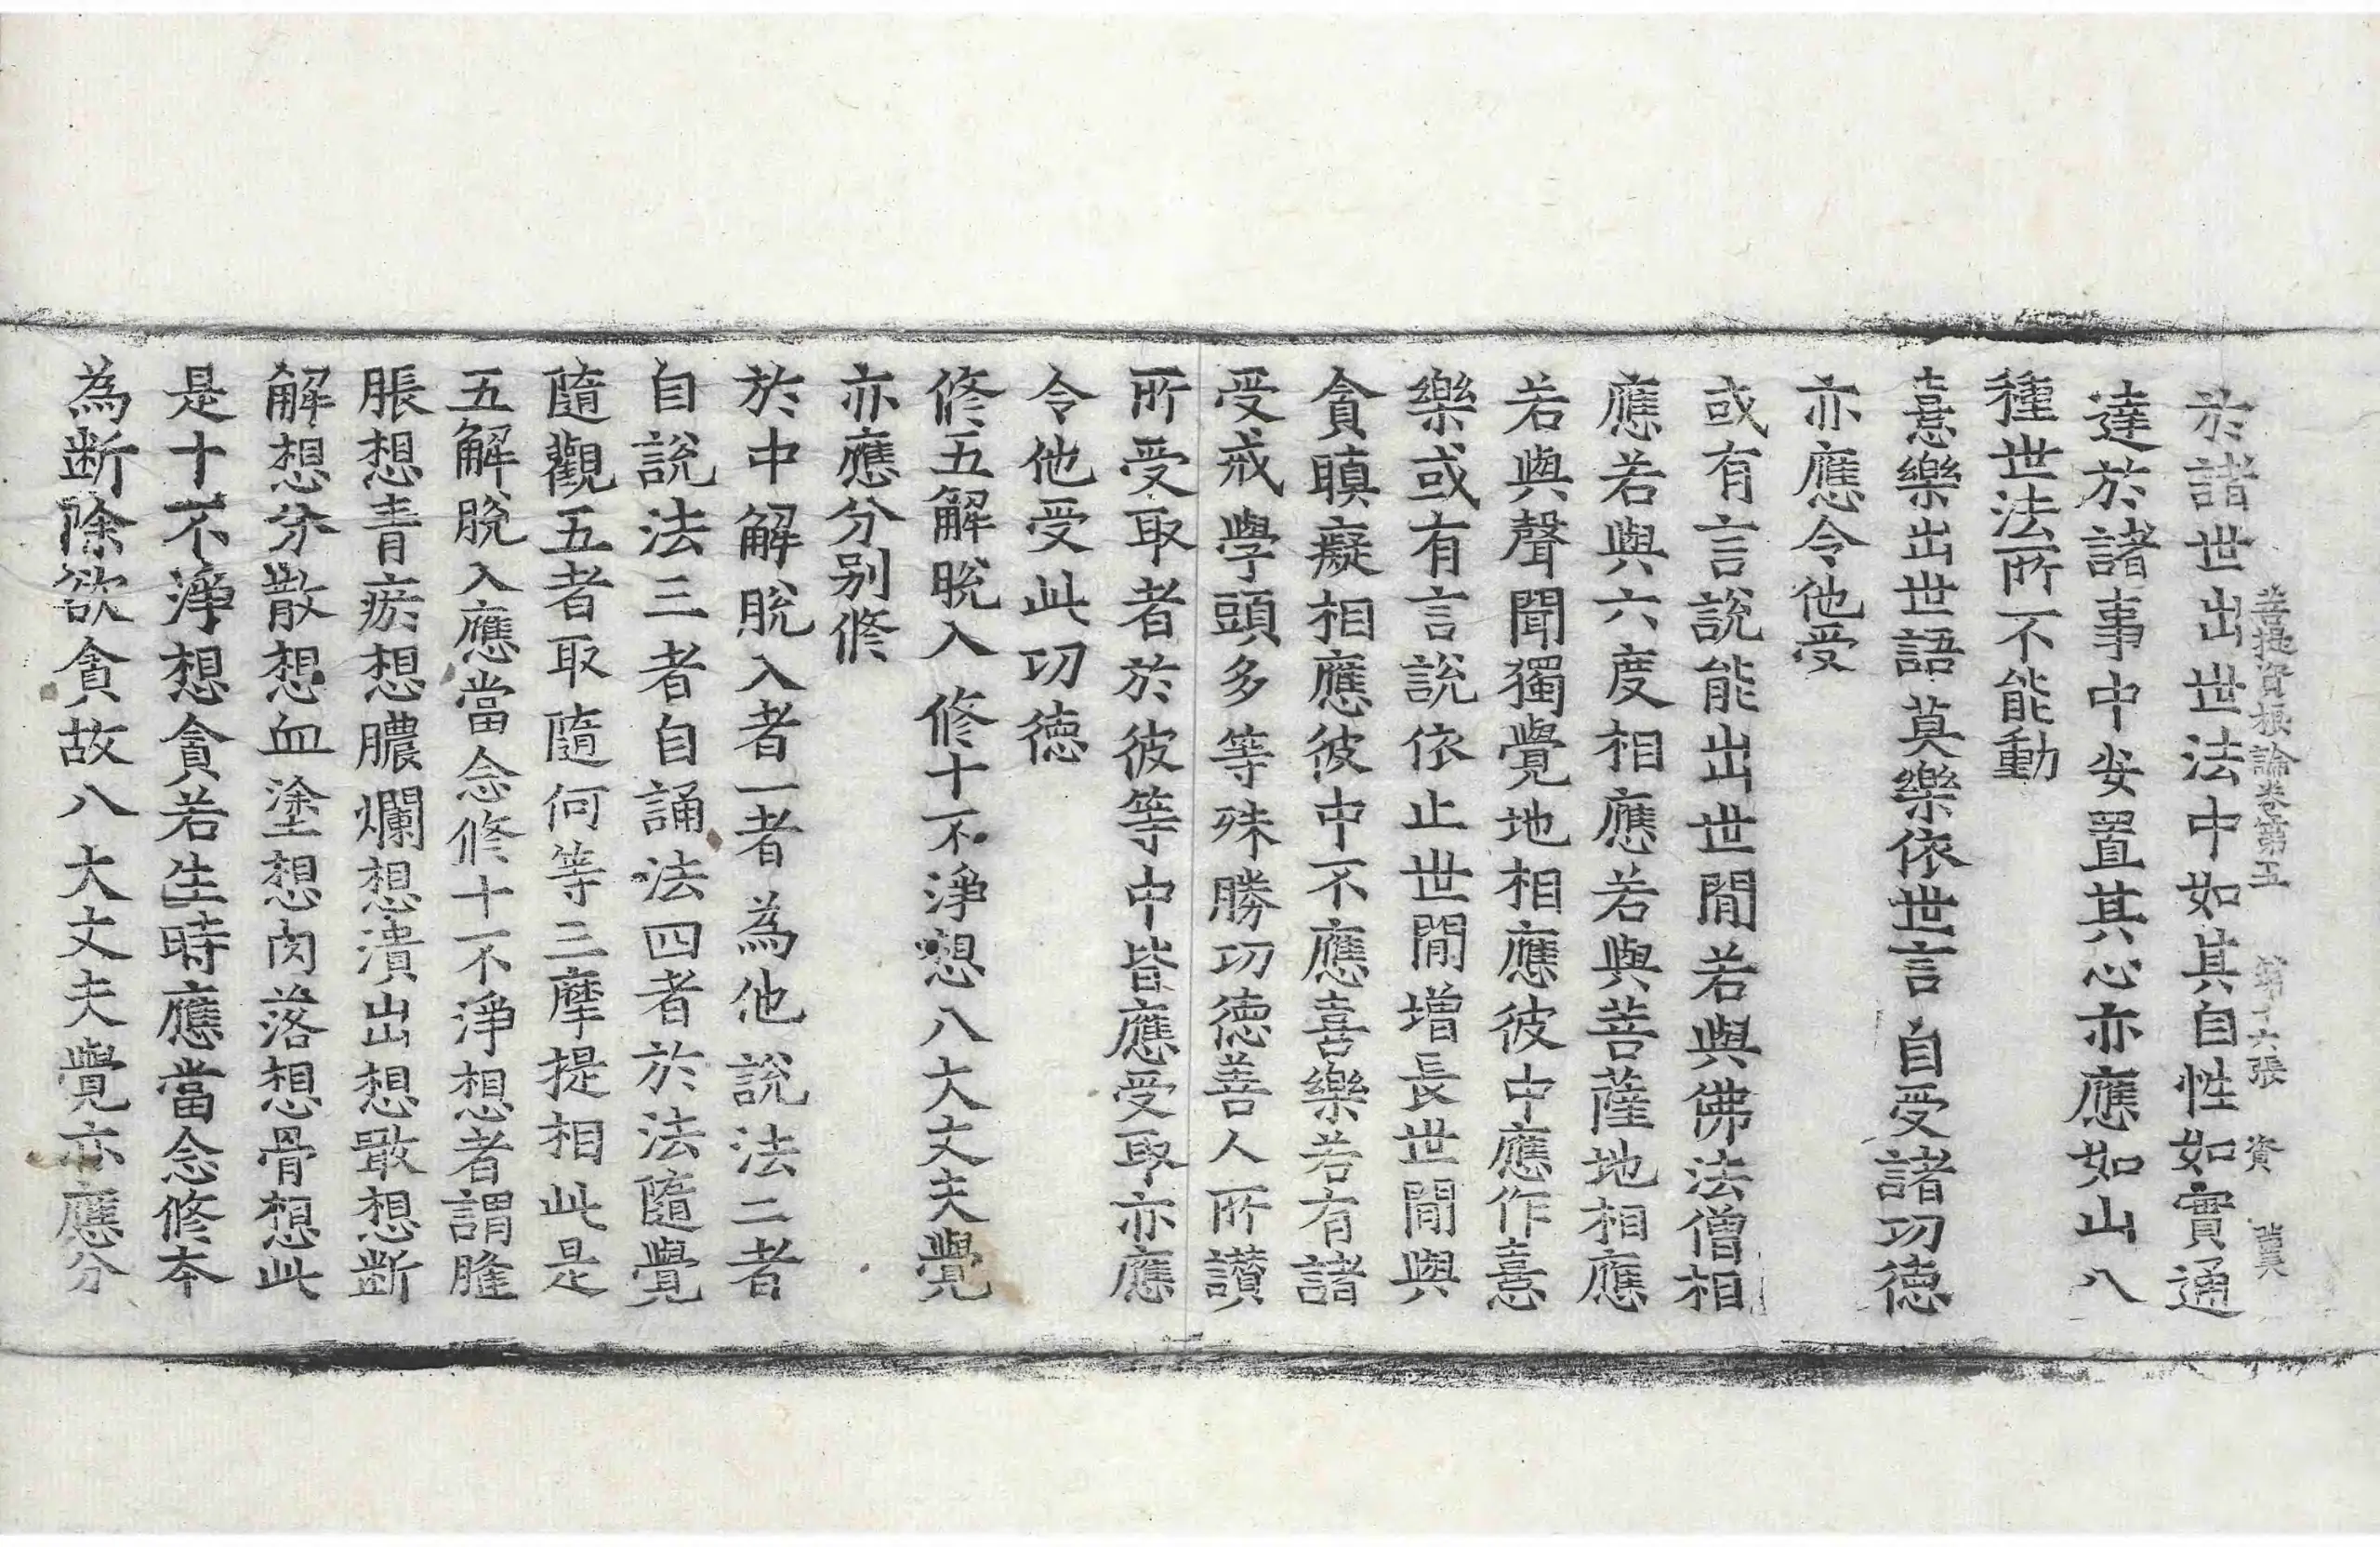 菩提資糧論卷第五　第十六張　資
於諸世出世法中如其自性如實通
達於諸事中安置其心亦應如山八
種世法所不能動
憙樂出世語　莫樂依世言　自受諸功德
亦應令他受
或有言說能出世閒若與佛法僧相
應若與六度相應若與菩薩地相應
若與聲聞獨覺地相應彼中應作憙
樂或有言說依止世閒增長世閒與
貪瞋癡相應彼中不應喜樂若有諸
受戒學頭多等殊勝功德善人所讃
所受取者於彼等中皆應受取亦應
令他受此功德
修五解脫入　修十不淨想　八大丈夫覺
亦應分別修
於中解脫入者一者為他說法二者
自說法三者自誦法四者於法隨覺
隨觀五者取隨何等三摩提相此是
五解脫入應當念修十不淨想者謂膖
脹想青瘀想膿爛想潰出想噉想斷
解想分散想血塗想肉落想骨想此
是十不淨想貪若生時應當念修本
為斷除欲貪故八大丈夫覺亦應分